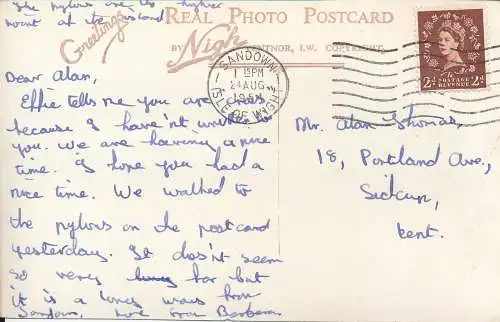 The pylons are its higher
point at its island
Greetings
REAL PHOTO POSTCARD
BY Nigh VENTNOR, I.W. COPYRIGHT.
SANDOWN
1 15 PM
24 AUG
ISLE OF WIGHT
2d POSTAGE REVENUE 2d
Dear Alan,
Effie tells me you are
because I haven't
you. We are having a nice
time. I hope you had a
nice time. We walked to
the pylons on the postcard
yesterday. It dosn't seem
so very far but
it is a long ways from
Sandown, love from Barbara
Mr. Alan Thomas,
18, Portland Ave.,
Sidcup,
Kent.